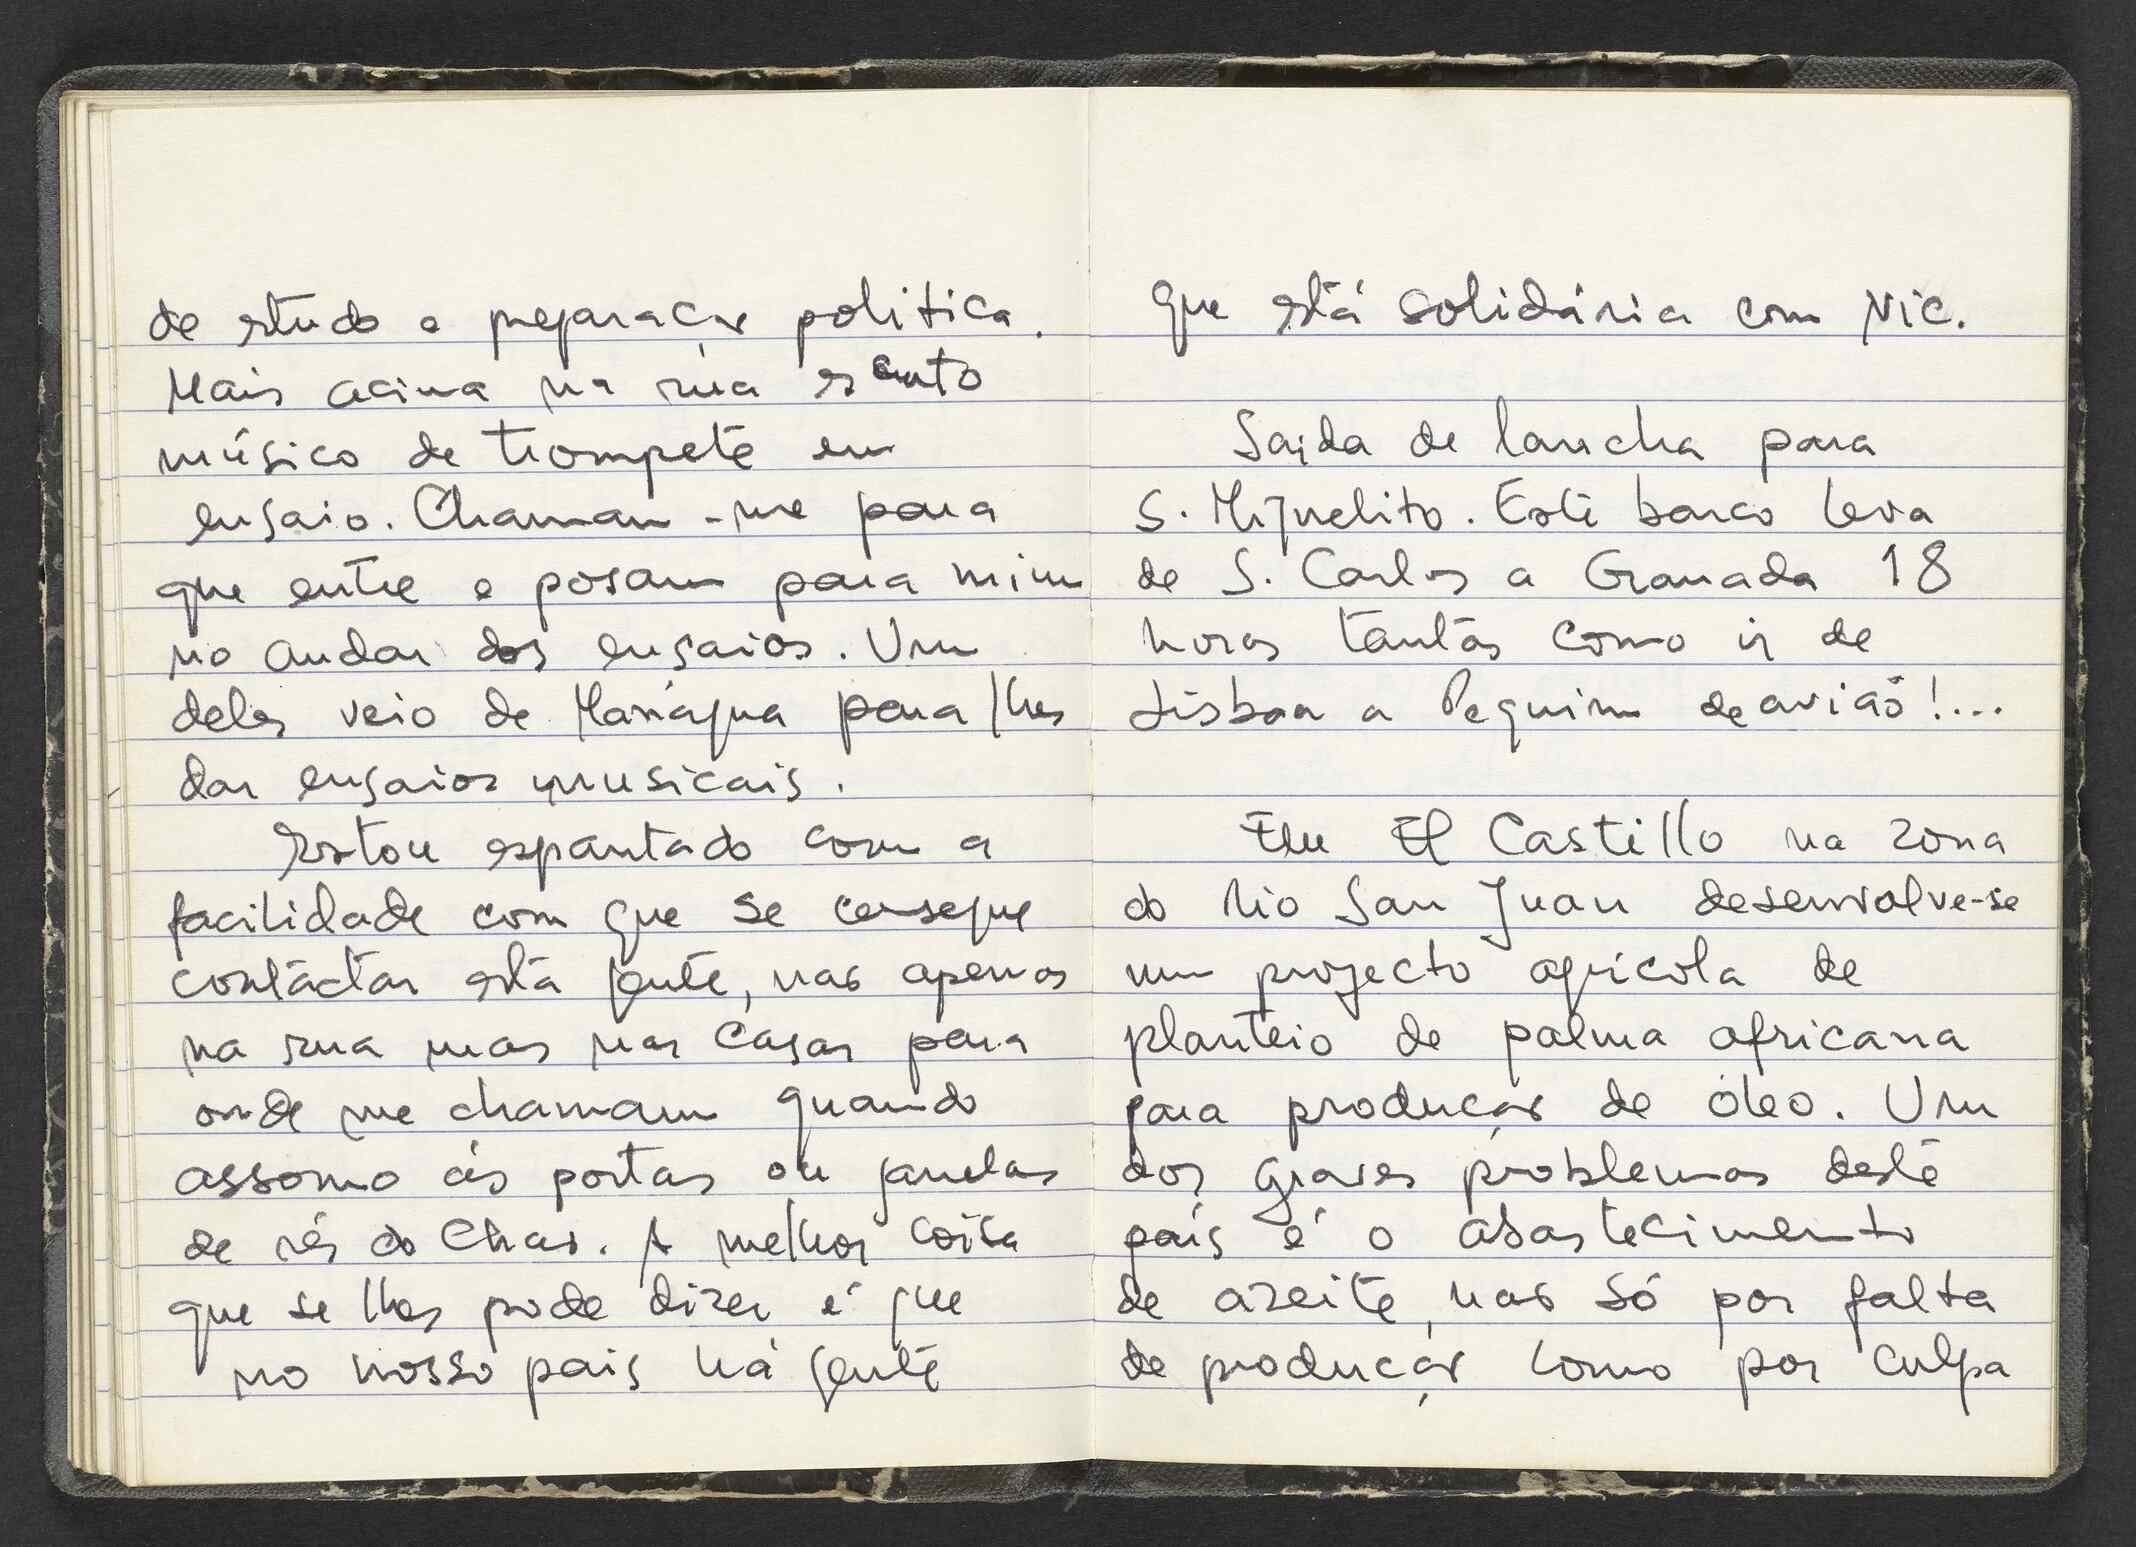 de estudo e preparação politica.
Mais acima na rua escuto
músico de trompete em
ensaio. Chamam-me para
que entre e posam para mim
no andar dos ensaios. Um
deles veio de Manágua para lhes
dar ensaios musicais.
Estou espantado com a
facilidade com que se consegue
contactar esta gente, não apenas
na rua mas nas casas para
onde me chamam quando
assomo às portas ou janelas
de rés do chão. A melhor coisa
que se lhes pode dizer é que
no nosso pais há gente
que está solidária com Nic.
Saida de lancha para
S. Miguelito. Este barco leva
de S. Carlos a Granada 18
horas tantas como ir de
Lisboa a Pequim de avião!...
Em El Castillo na zona
do Rio San Juan desenvolve-se
um projecto agricola de
planteio de palma africana
para produção de óleo. Um
dos graves problemas deste
país é o abastecimento
de azeite, não só por falta
de produção como por culpa